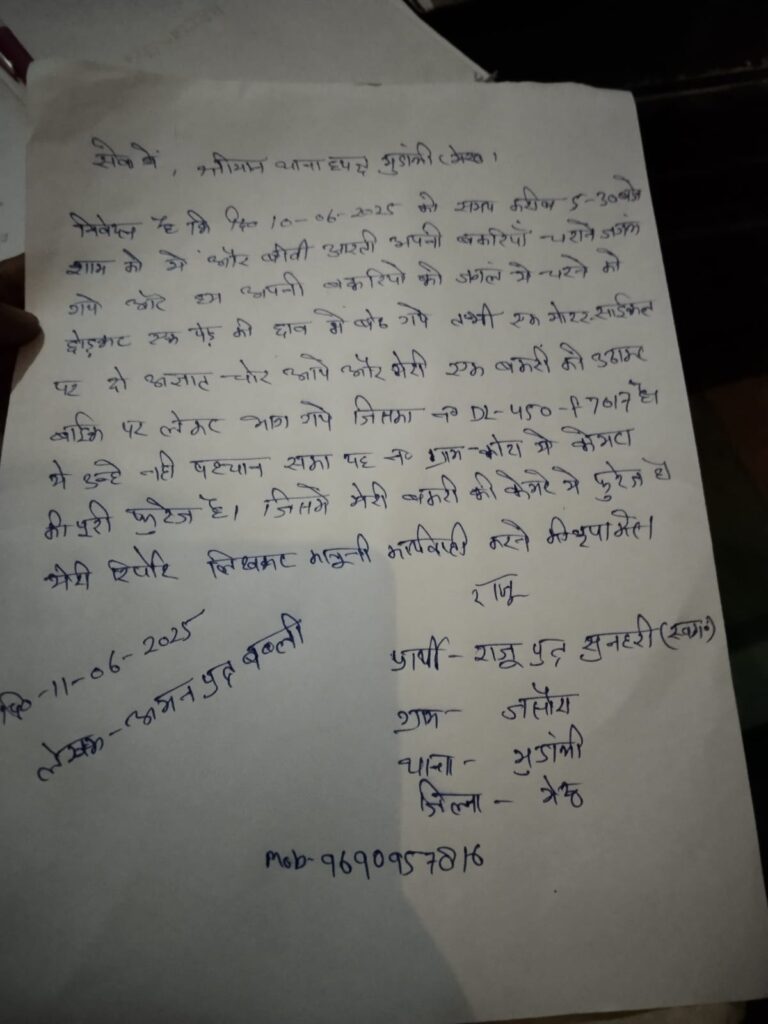 सेवा में, श्रीमान थाना हपक्ष मुडांली (मेरठ)।
निवेदन है कि दि० 10-06-2025 को समय करीब 5-30 बजे
शाम को मैं और बीवी आरती अपनी बकरियाँ चराने जगंल
गये और हम अपनी बकरियो को जगंल मे चरने को
छोड़कर एक पेड़ की छाव में बैठ गये तभी एक मोटर साईकल
पर दो अज्ञात चोर आये और मेरी एक बकरी को उठाकर
बाईक पर लेकर भाग गये जिसका न० DL-450-P 7017 है।
मे उन्हे नही पहचान सका यह न० ग्राम-कोटा मे केमरा
की पूरी फुटेज है। जिसमें मेरी बकरी की केमरे मे फुटेज है
मेरी रिपोर्ट लिखकर कानूनी कार्यवाही करने की कृपा करे।
राजू
दि०-11-06-2025
लेखक-अमन पुत्र बबली
प्रार्थी - राजू पुत्र सुनहरी (स्वर्गीय)
ग्राम- जसौरा
थाना - मुडांली
जिल्ला - मेरठ
Mob- 9690957816